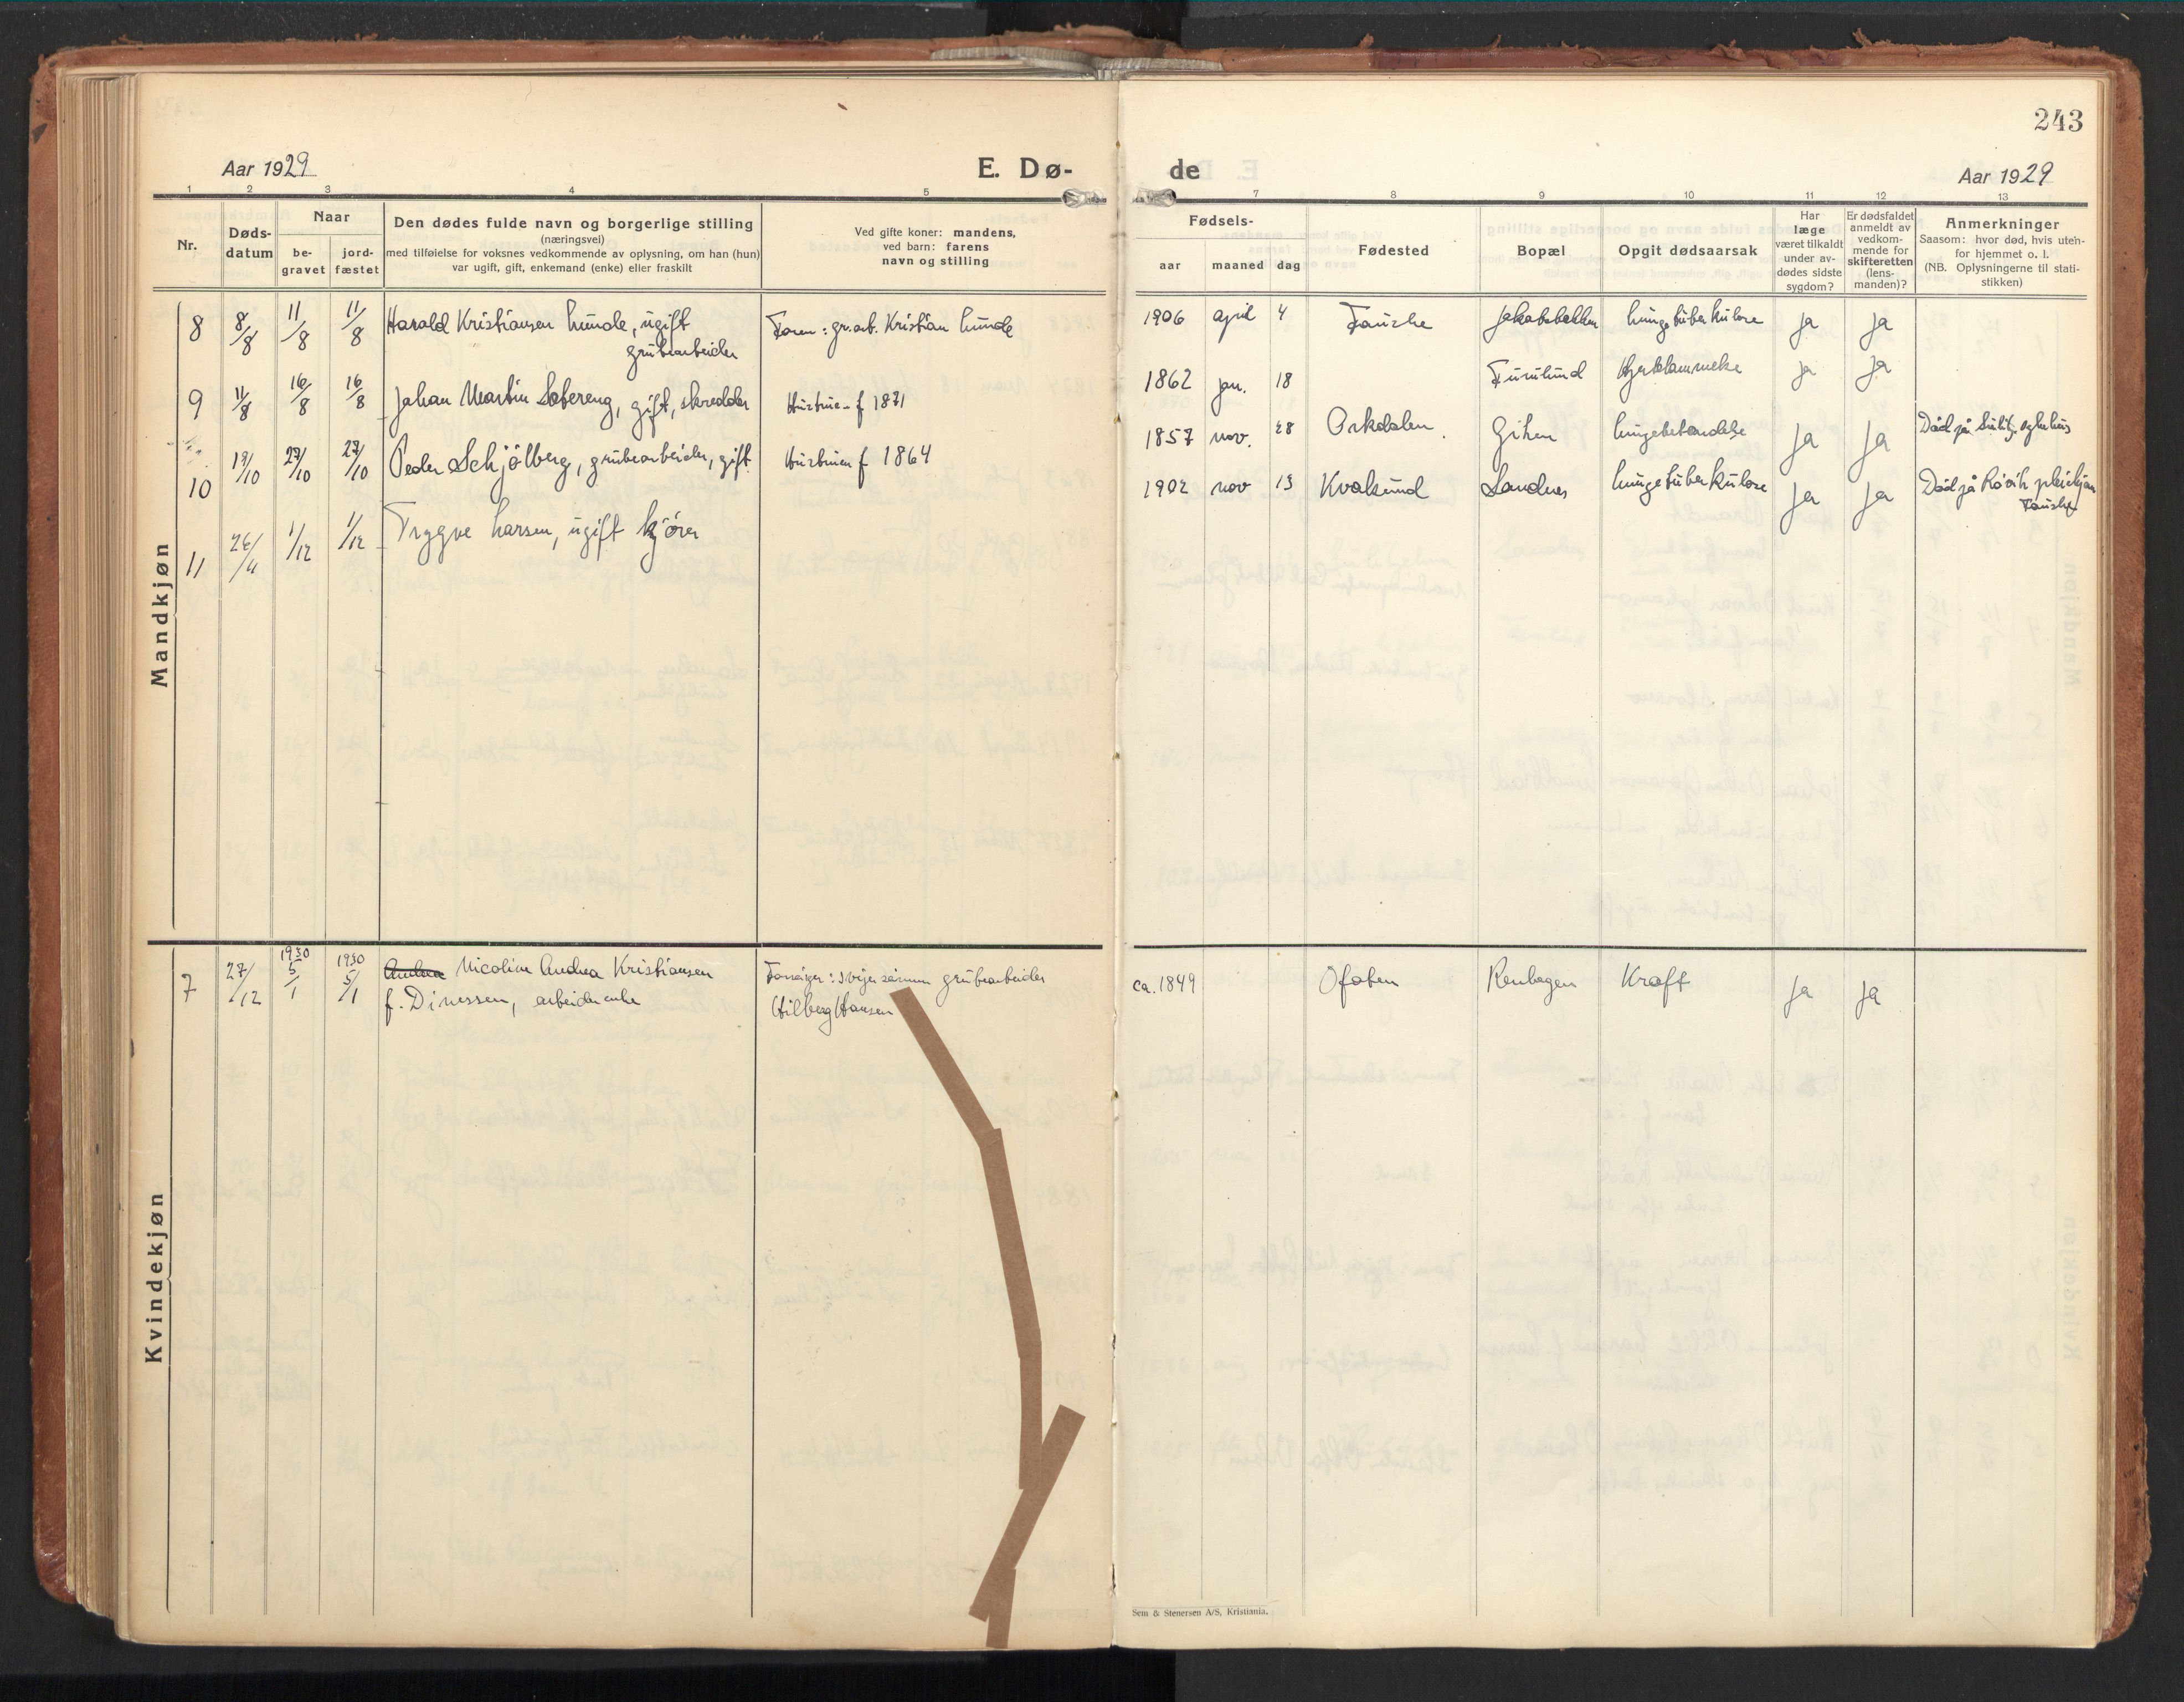 243
Aar 1929
E. Dø-
de
Aar 1929
1 2 3 4 5 7 8 9 10 11 12 13
Nr.
Døds-
datum
Naar
be-
gravet
jord-
fæstet
Den dødes fulde navn og borgerlige stilling
(næringsvei)
med tilføielse for voksnes vedkommende av oplysning, om han (hun)
var ugift, gift, enkemand (enke) eller fraskilt
Ved gifte koner: mandens,
ved barn: farens
navn og stilling
Fødsels-
aar maaned dag
Fødested
Bopæl
Opgit dødsaarsak
Har
læge
været tilkaldt
under av-
dødes sidste
sygdom?
Er dødsfaldet
anmeldt av
vedkom-
mende for
skifteretten
(lens-
manden)?
Anmerkninger
Saasom: hvor død, hvis uten-
for hjemmet o. l.
(NB. Oplysningerne til stati-
stikken)
Mandkjøn
8 8/8 11/8 11/8 Harald Kristiansen Lunde, ugift
grubearbeider
Faren: gr.arb. Kristian Lunde
1906 april 4 Fauske Jakobsbakken lungetuberkulose ja ja
9 11/8 16/8 16/8 Johan Martin Sætereng, gift, skredder
Hustruen f 1871
1862 jan. 18 Furulund Hjertelammelse ja ja
10 19/10 27/10 27/10 Peder Schjølberg, grubearbeider, gift
Hustruen f 1864
1857 nov. 28 Orkdalen Giken lungebetændelse ja ja Død på Sulitj. sykehus
11 26/11 1/12 1/12 Trygve Larsen, ugift kjører
1902 nov 13 Kvalsund Sandnes lungetuberkulose ja ja Død på Røvik pleiehjem
Fauske
Kvindekjøn
7 27/12 1930 5/1 1930 5/1 Andrea Nicoline Andrea Kristiansen
f. Dinessen, arbeiderenke
Forsørger: svigersønnen grubearbeider
Hilberg Hansen
ca. 1849 Ofoten Renhagen Kræft ja ja
Sem & Stenersen A/S, Kristiania.